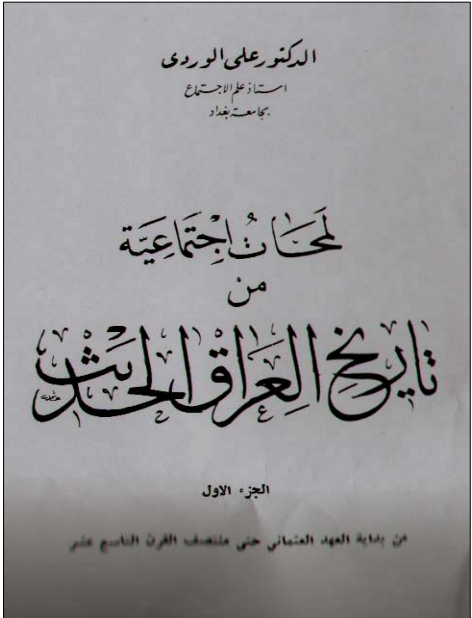 الدكتور على الوردى
استاذ علم الاجتماع
بجامعة بغداد
لمَحَاتٌ اِجتِمَاعِيَّة
من
تاريخ العِراق الحَديث
الجزء الاول
من بداية العهد العثماني حتى منتصف القرن التاسع عشر